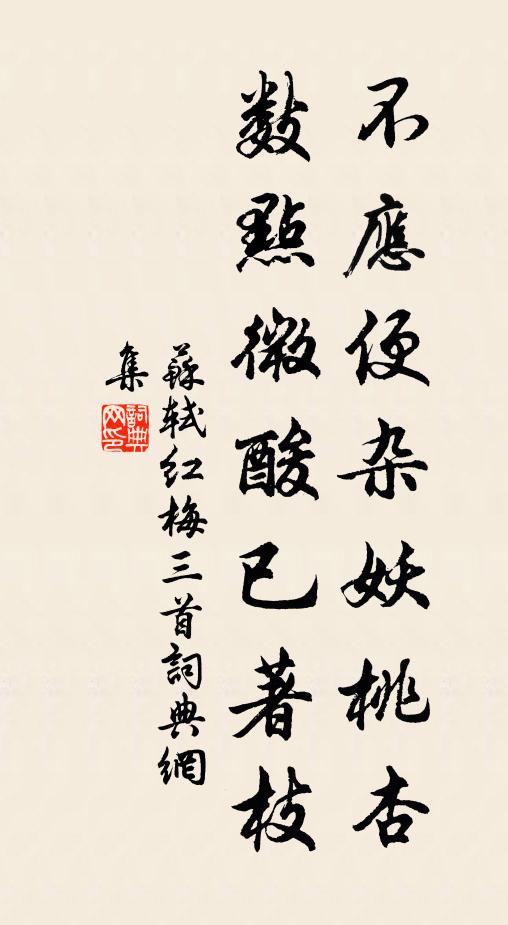 不應便杂妖桃杏
數點微酸已著枝
蘇軾红梅三首詞典網
集
詞典
网印